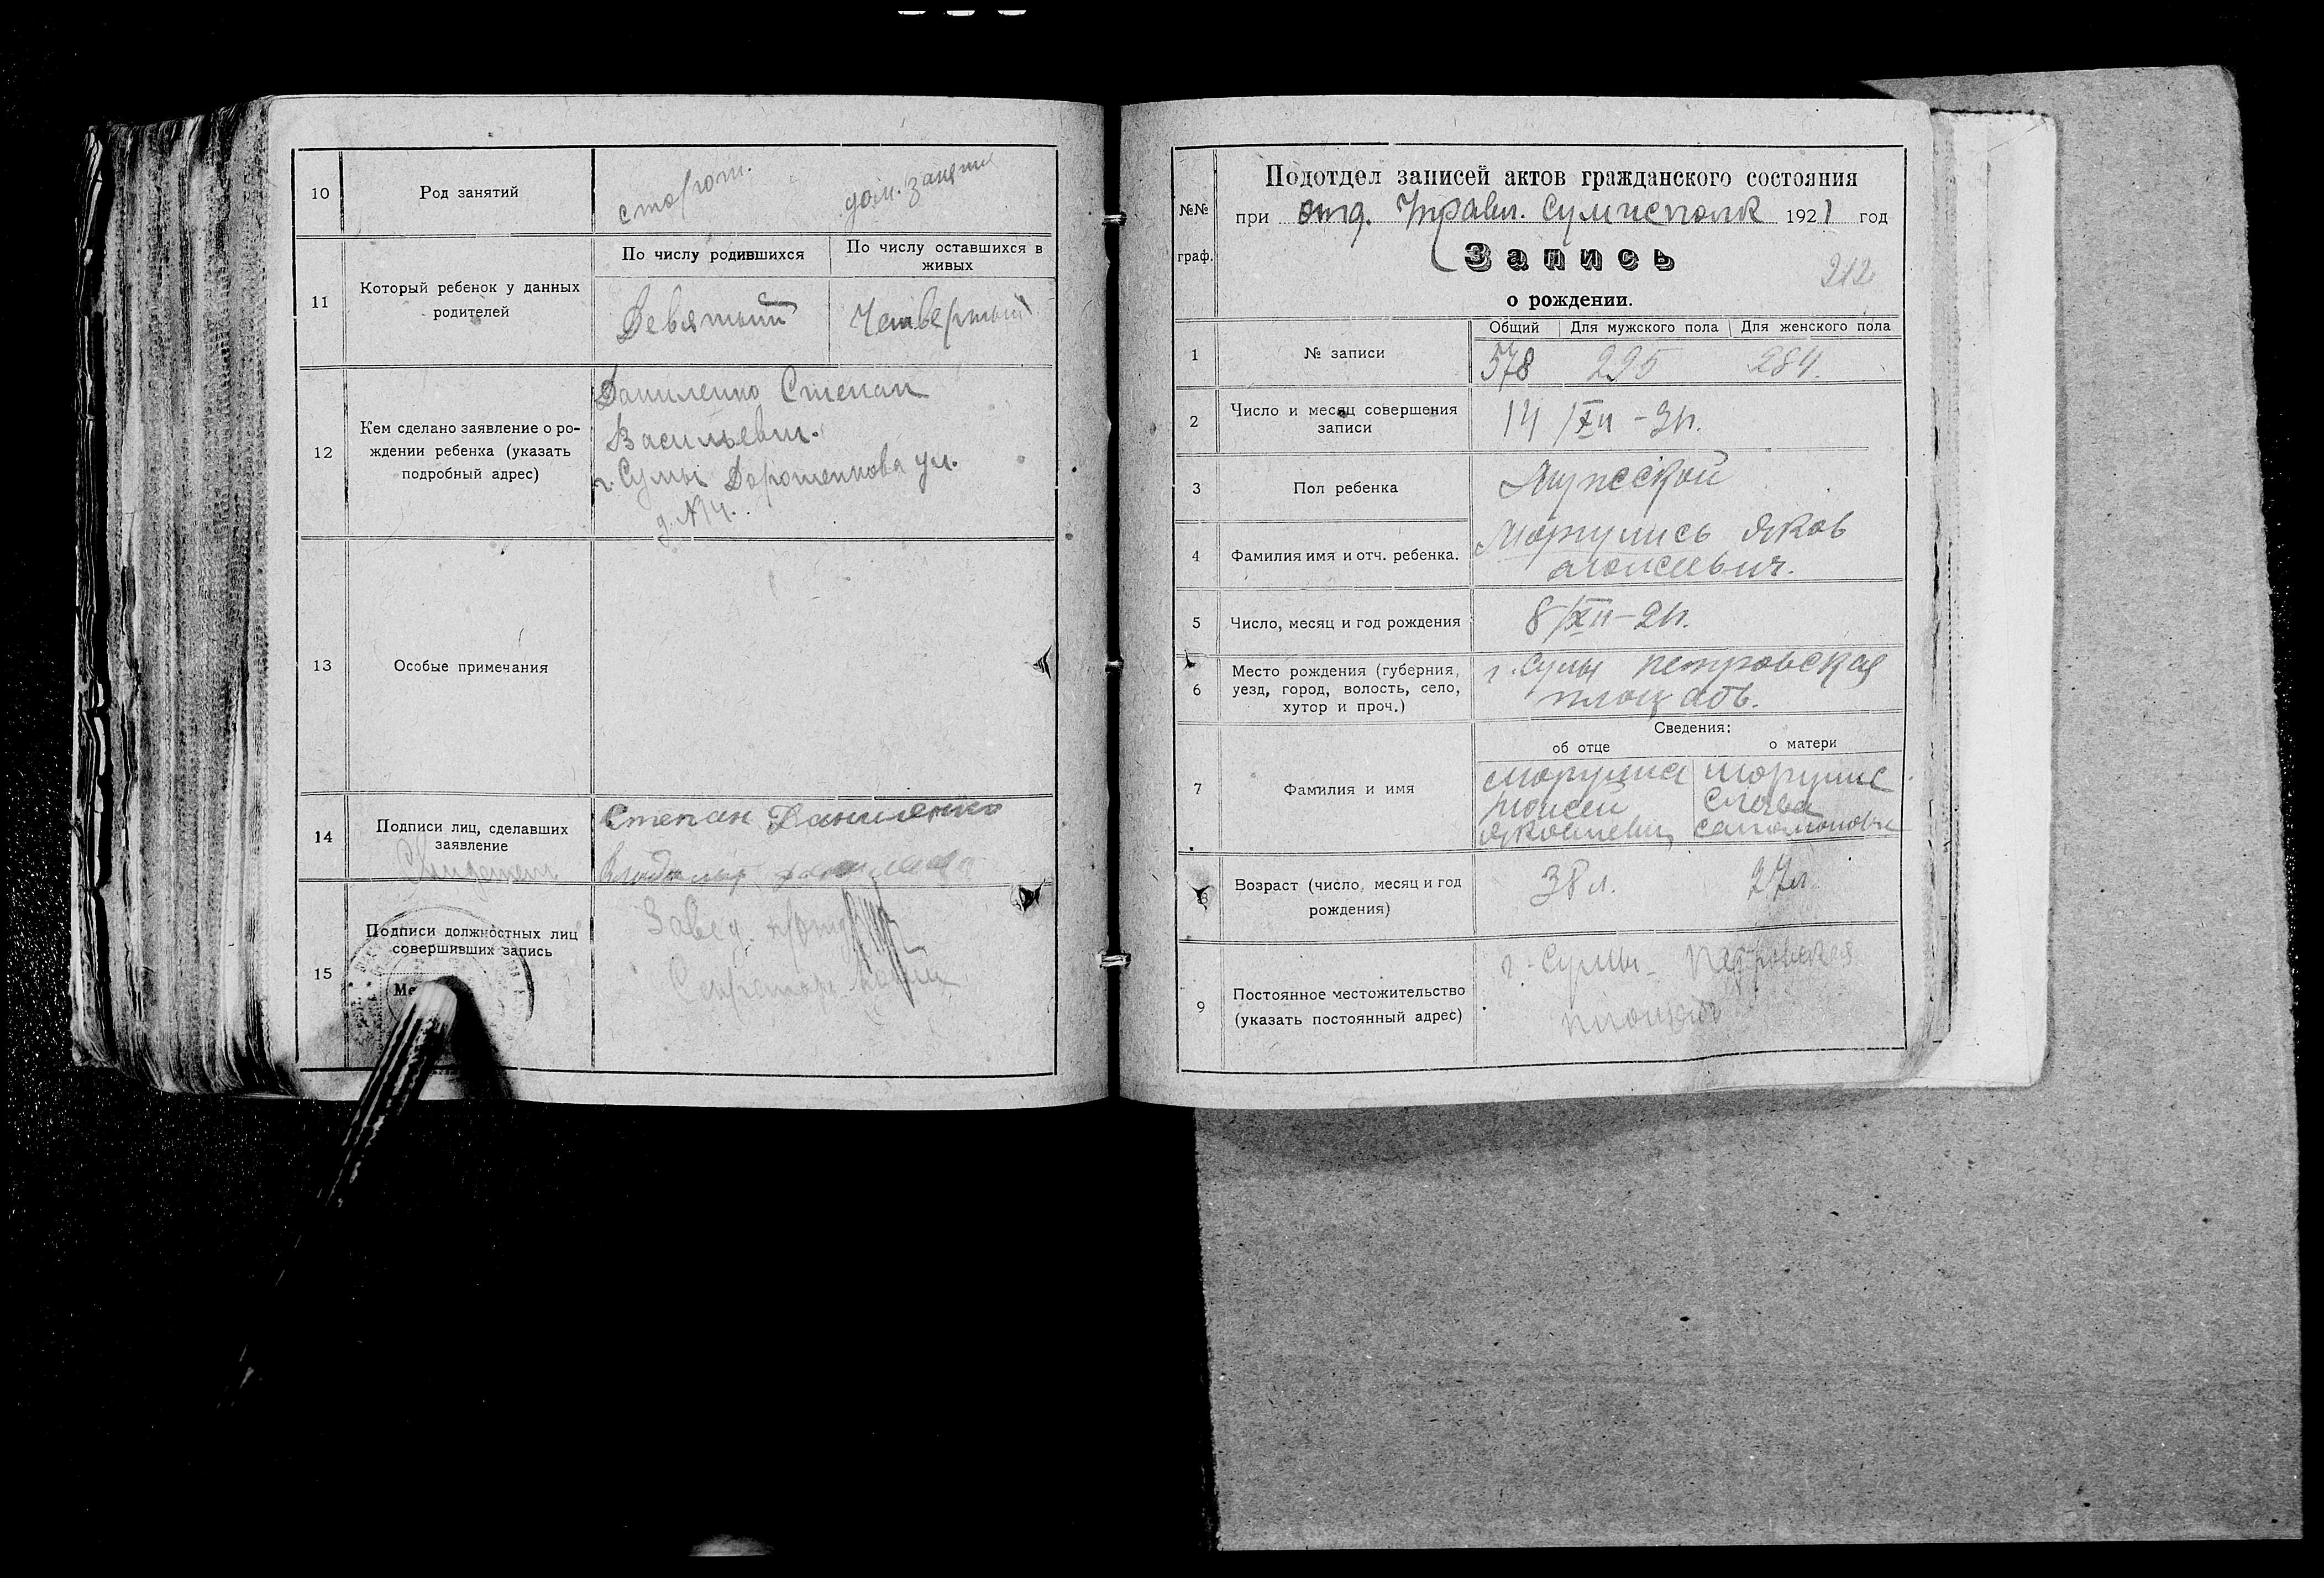 10 Род занятий сторож. дом. занятие
11 Который ребенок у данных
родителей
По числу родившихся
По числу оставшихся в
живых
Девятый Четвертый
12 Кем сделано заявление о ро-
ждении ребенка (указать
подробный адрес)
Даниленко Степан
Васильевич.
г. Сумы Дорошенкова ул.
д. №4.
13 Особые примечания
14 Подписи лиц, сделавших
заявление
Степан Даниленко
15 Подписи должностных лиц
совершивших запись
Завед.
Секретарь
№№
граф.
Подотдел записей актов гражданского состояния
при отд. Управл. Сумисполк 1921 год
Запись
212
о рождении.
Общий Для мужского пола Для женского пола
1 № записи 578 295 284.
2 Число и месяц совершения
записи
14/XII-
3 Пол ребенка Мужской
4 Фамилия имя и отч. ребенка.
Моргулись Яков
Моисеевич.
5 Число, месяц и год рождения 8/XII-21г.
6 Место рождения (губерния,
уезд, город, волость, село,
хутор и проч.)
г. Сумы петровская
площадь.
Сведения:
об отце о матери
7 Фамилия и имя
Моргулис Моргулис
Моисей
8 Возраст (число, месяц и год
рождения)
38 л. 27л
9 Постоянное местожительство
(указать постоянный адрес)
г. Сумы - Петровская
площадь